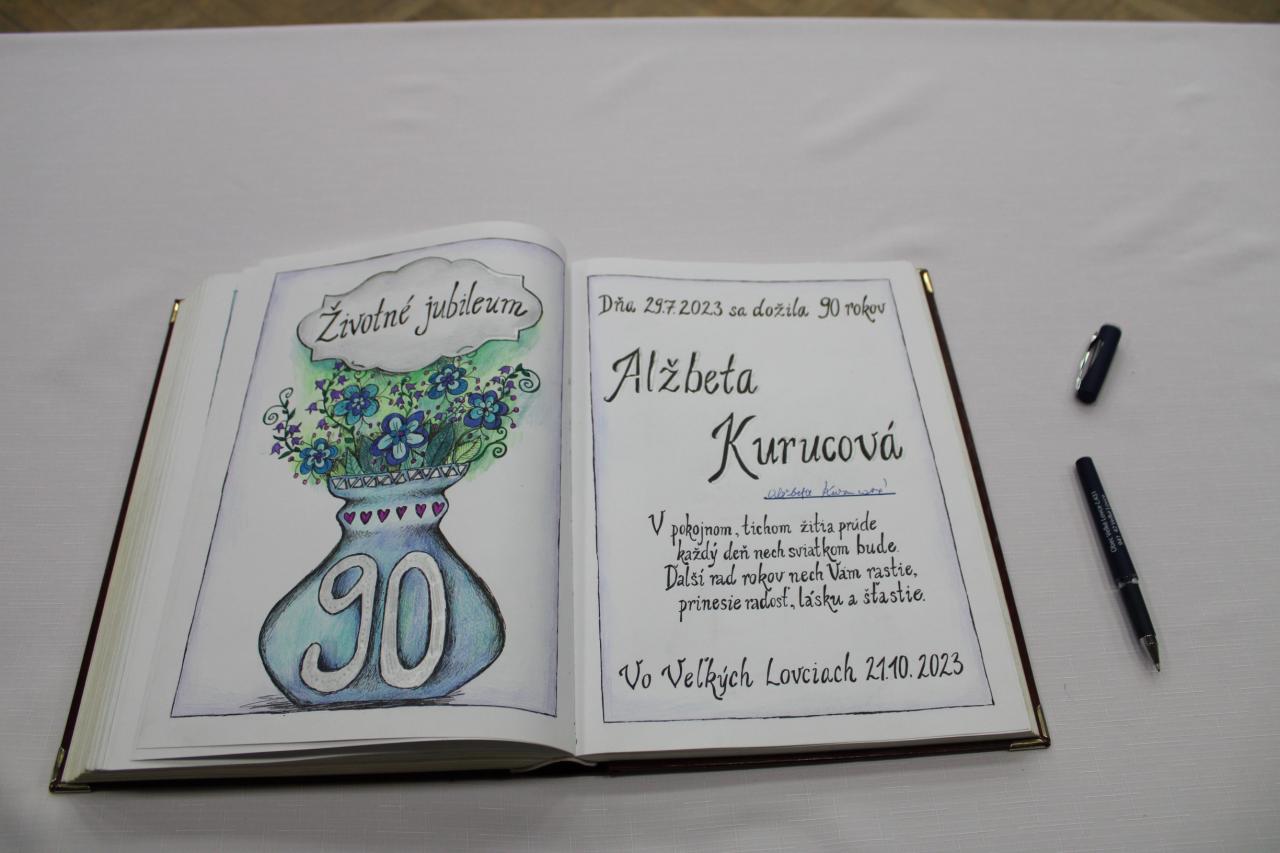 Životné jubileum
90
Dňa 29.7.2023 sa dožila 90 rokov
Alžbeta
Kurucová
Alžbeta Kurucová
V pokojnom, tichom žitia prúde
každý deň nech sviatkom bude.
Ďalší rad rokov nech Vám rastie,
prinesie radosť, lásku a šťastie.
Vo Veľkých Lovciach 21.10. 2023
Obec Veľké Lovce